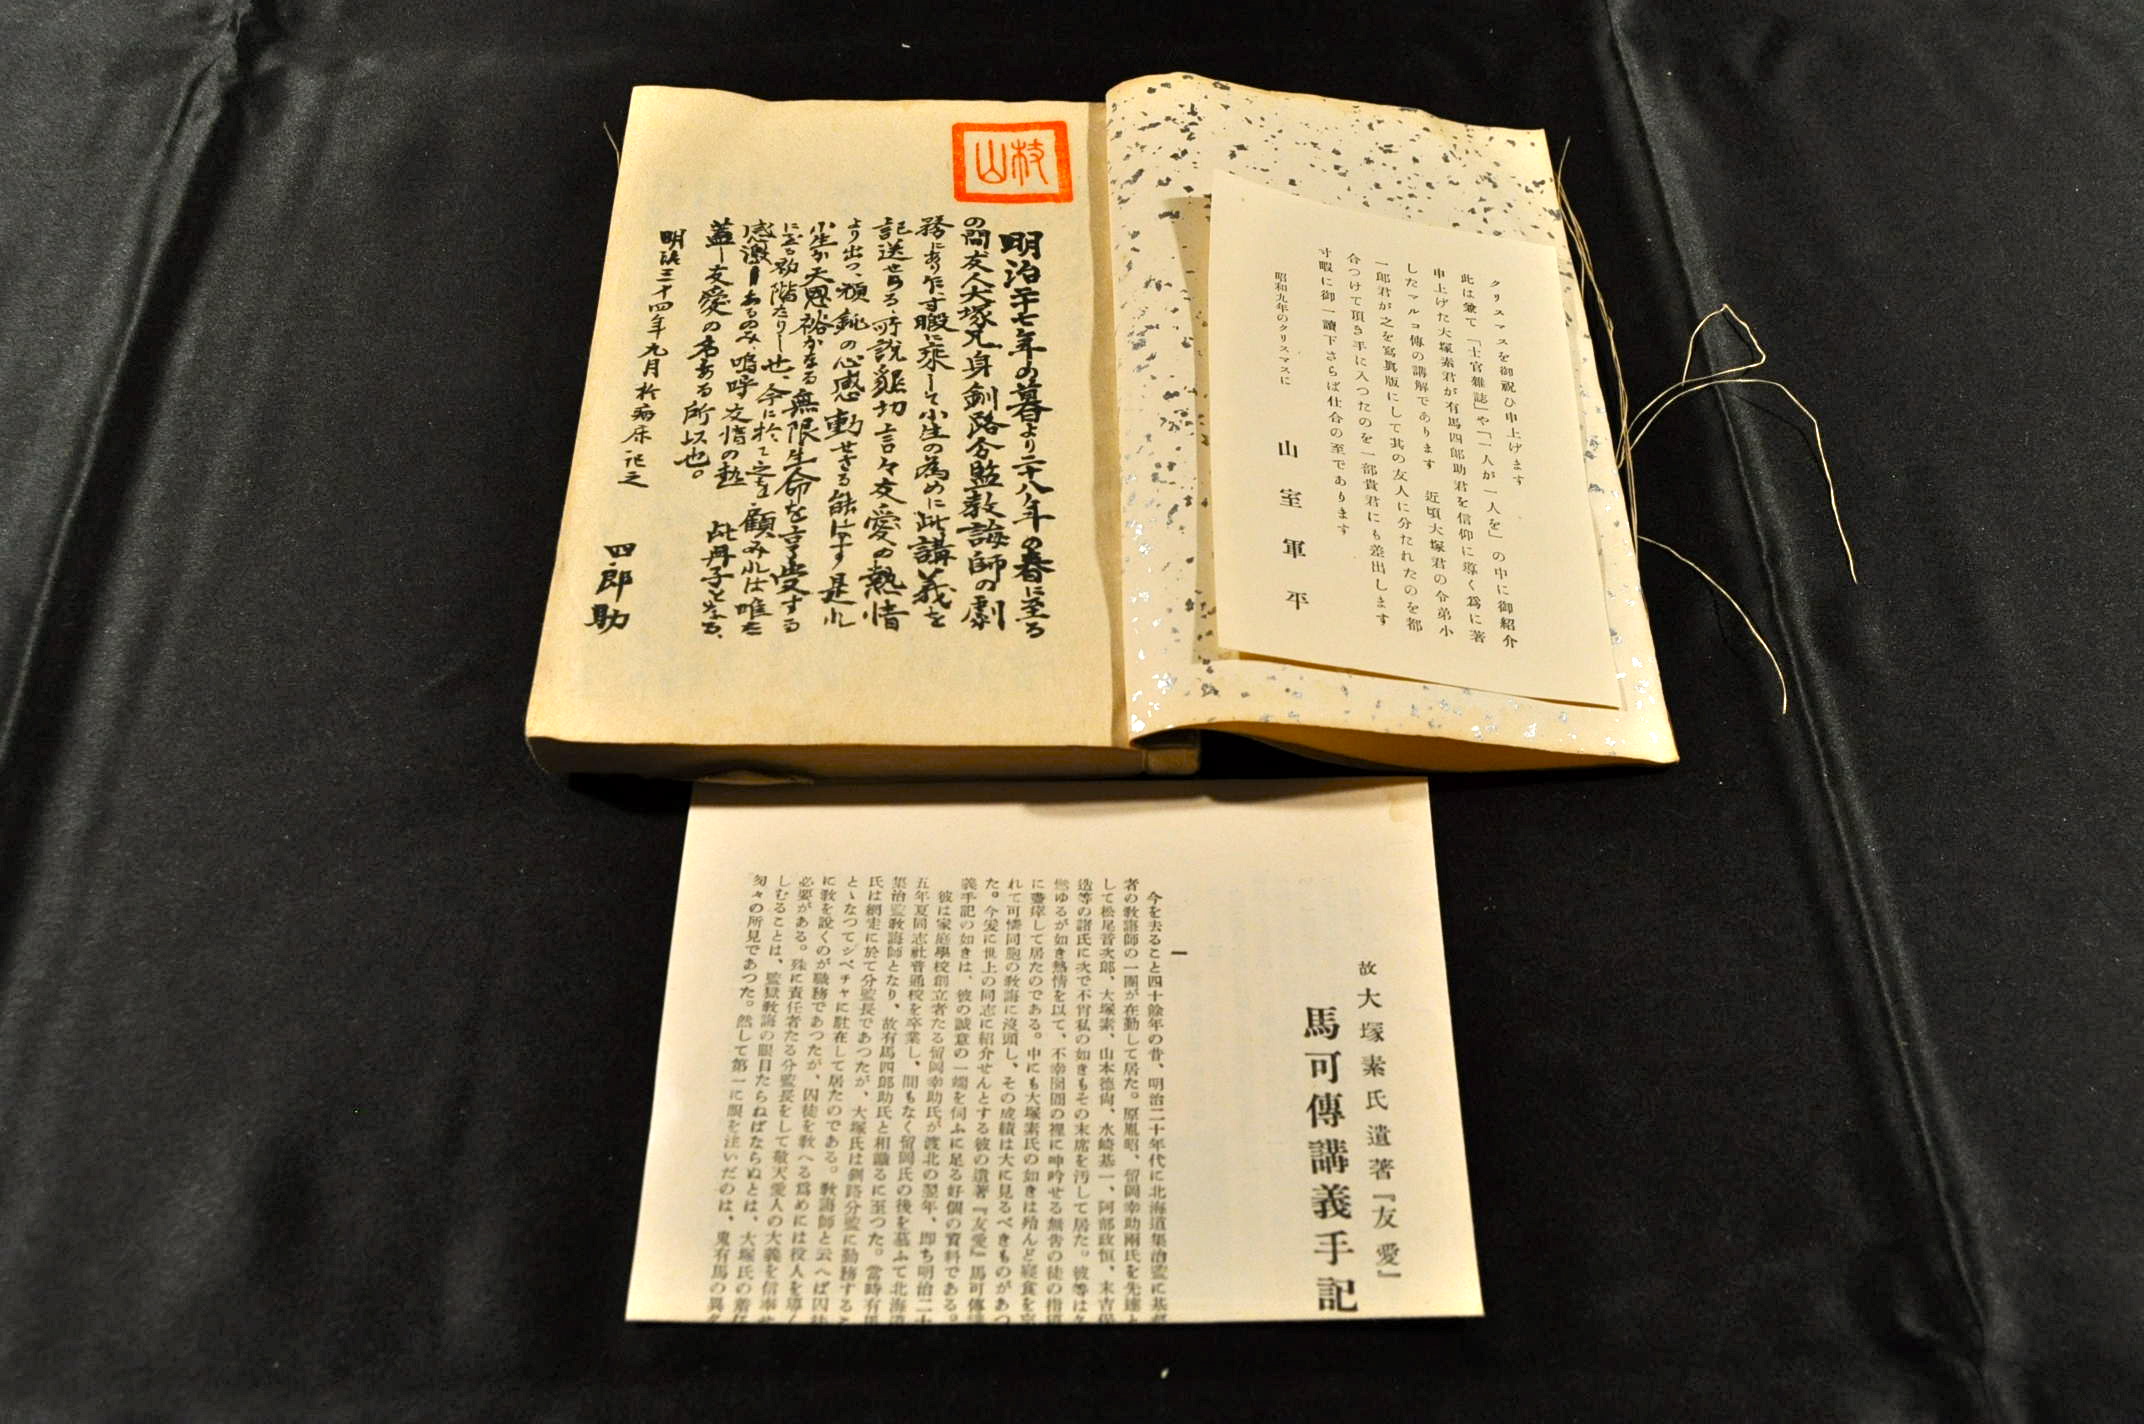 クリスマスを御祝ひ申上げます
此は兼て「士官雜誌」や「一人が一人を」の中に御紹介
申上げた大塚素君が有馬四郎助君を信仰に導く爲に著
したマルコ傳の講解であります　近頃大塚君の令弟小
一郎君が之を寫眞版にして其の友人に分たれたのを都
合つけて頂き手に入つたのを一部貴君にも差出します
寸暇に御一讀下さらば仕合の至であります
昭和九年のクリスマスに
山室軍平
山枝
明治二十七年の暮より二十八年の春に至る
の間友人大塚兄身釧路分監教誨師の劇
務にあり乍す暇に乘して小生の為めに此講義を
記送せらる所説懇切言々友愛の熱情
より出つ、頑鈍の心感動せさる能はす是れ
小生か天恩裕かなる無限生命を享受する
に至る階たりし也、今に於て之を顧みれは唯た
感激あるのみ、嗚呼友情の熱
蓋し友愛の名ある所以也。
明治三十四年九月於病床記之
四郎助
故大塚素氏遺著『友愛』
馬可傳講義手記
一
今を去ること四十餘年の昔、明治二十年代に北海道集治監に基
者の教誨師の一團が在勤して居た。原胤昭、留岡幸助兩氏を先達と
して松尾音次郎、大塚素、山本德尚、水崎基一、阿部政恒、末吉保
造等の諸氏に次で不肖私の如きもその末席を汚して居た。彼等は
燃ゆるが如き熱情を以て、不幸囹圄の裡に呻吟せる無告の徒の指導
に盡瘁して居たのである。中にも大塚素氏の如きは殆んど寢食を忘
れて可憐同胞の教誨に沒頭し、その成績は大に見るべきものがあつ
た。今爰に世上の同志に紹介せんとする彼の遺著『友愛』馬可傳講
義手記の如きは、彼の誠意の一端を伺ふに足る好個の資料である。
彼は家庭學校創立者たる留岡幸助氏が渡北の翌年、即ち明治二十
五年夏同志社普通校を卒業し、間もなく留岡氏の後を慕ふて北海道
集治監教誨師となり、故有馬四郎助氏と相識るに至つた。當時有馬
氏は網走に於て分監長であつたが、大塚氏は釧路分監に勤務するこ
とゝなつてシベチャに駐在して居たのである。教誨師と云へば囚徒
に教を說くのが職務であつたが、囚徒を教へる爲めには役人を導く
必要がある。殊に責任者たる分監長をして敬天愛人の大義を信奉せ
しむることは、監獄教誨の眼目たらねばならぬとは、大塚氏の着任
匆々の所見であつた。然して第一に眼を注いだのは、鬼有馬の異名